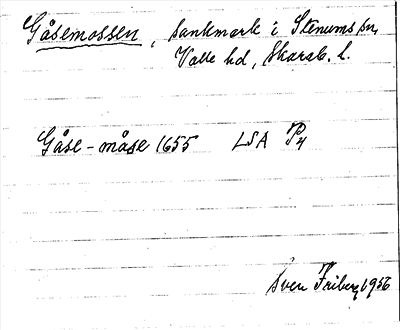 Gåsemossen, sankmark i Stenums sn,
Valle hd, Skarab. l.
Gåse-måse 1655 LSA P4
Sven Friberg 1956